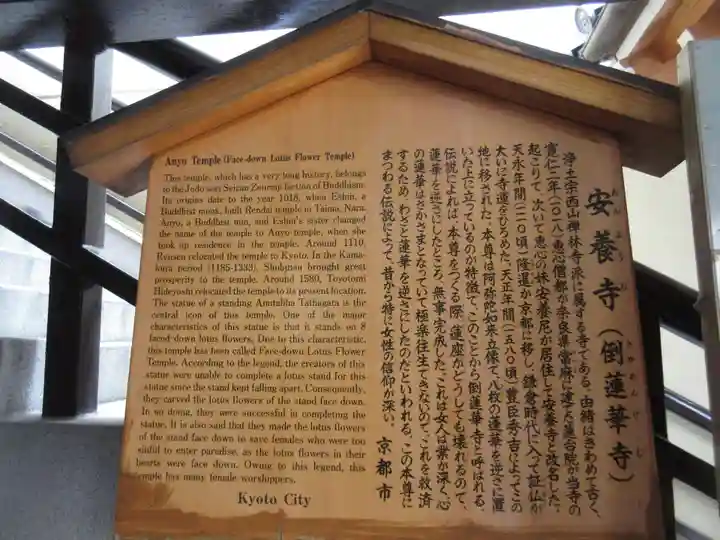 Anyo Temple (Face-down Lotus Flower Temple)
This temple, which has a very long history, belongs
to the Jodo sect Seizan Zenrinji faction of Buddhism.
Its origins date to the year 1018, when Eshin, a
Buddhist monk, built Rendai temple in Taima, Nara.
Anyo, a Buddhist nun, and Eshin's sister changed
the name of the temple to Anyo temple, when she
took up residence in the temple. Around 1110,
Ryusen relocated the temple to Kyoto. In the Kama-
kura period (1185-1333), Shobutsu brought great
prosperity to the temple. Around 1580, Toyotomi
Hideyoshi relocated the temple to its present location.
The statue of a standing Amitabha Tathagata is the
central icon of this temple. One of the major
characteristics of this statue is that it stands on 8
faced-down lotus flowers. Due to this characteristic,
this temple has been called Face-down Lotus Flower
Temple. According to the legend, the creators of this
statue were unable to complete a lotus stand for this
statue since the stand kept falling apart. Consequently,
they carved the lotus flowers of the stand face down.
In so doing, they were successful in completing the
statue. It is also said that they made the lotus flowers
of the stand face down to save females who were too
sinful to enter paradise, as the lotus flowers in their
hearts were face down. Owing to this legend, this
temple has many female worshippers.
Kyoto City
安養寺(倒蓮華寺)
浄土宗西山禅林寺派に属する寺である。由緒はきわめて古く、
寛仁二年(一〇一八)恵心僧都が奈良県當麻に建てた蓮台院が当寺の
起こりで、次いで恵心の妹安養尼が居住して安養寺と改名した。
天永年間(一一一〇頃)隆暹が京都に移し、鎌倉時代に入って証仏が
大いに寺運をひろめた。天正年間(一五八〇頃)豊臣秀吉によってこの
地に移された。本尊は阿弥陀如来立像で、八枚の蓮華を逆さに置
いた上に立っているのが特徴で、このことから倒蓮華寺と呼ばれる。
伝説によれば、本尊をつくる際、蓮座がどうしても壊れるので、
蓮華を逆さにしたところ、無事完成した。これは女人は業が深く、心
の蓮華はさかさまとなっていて極楽往生できないので、これを救済
するため、わざと蓮華を逆さにしたのだといわれる。この本尊に
まつわる伝説によって、昔から特に女性の信仰が深い。
京都市